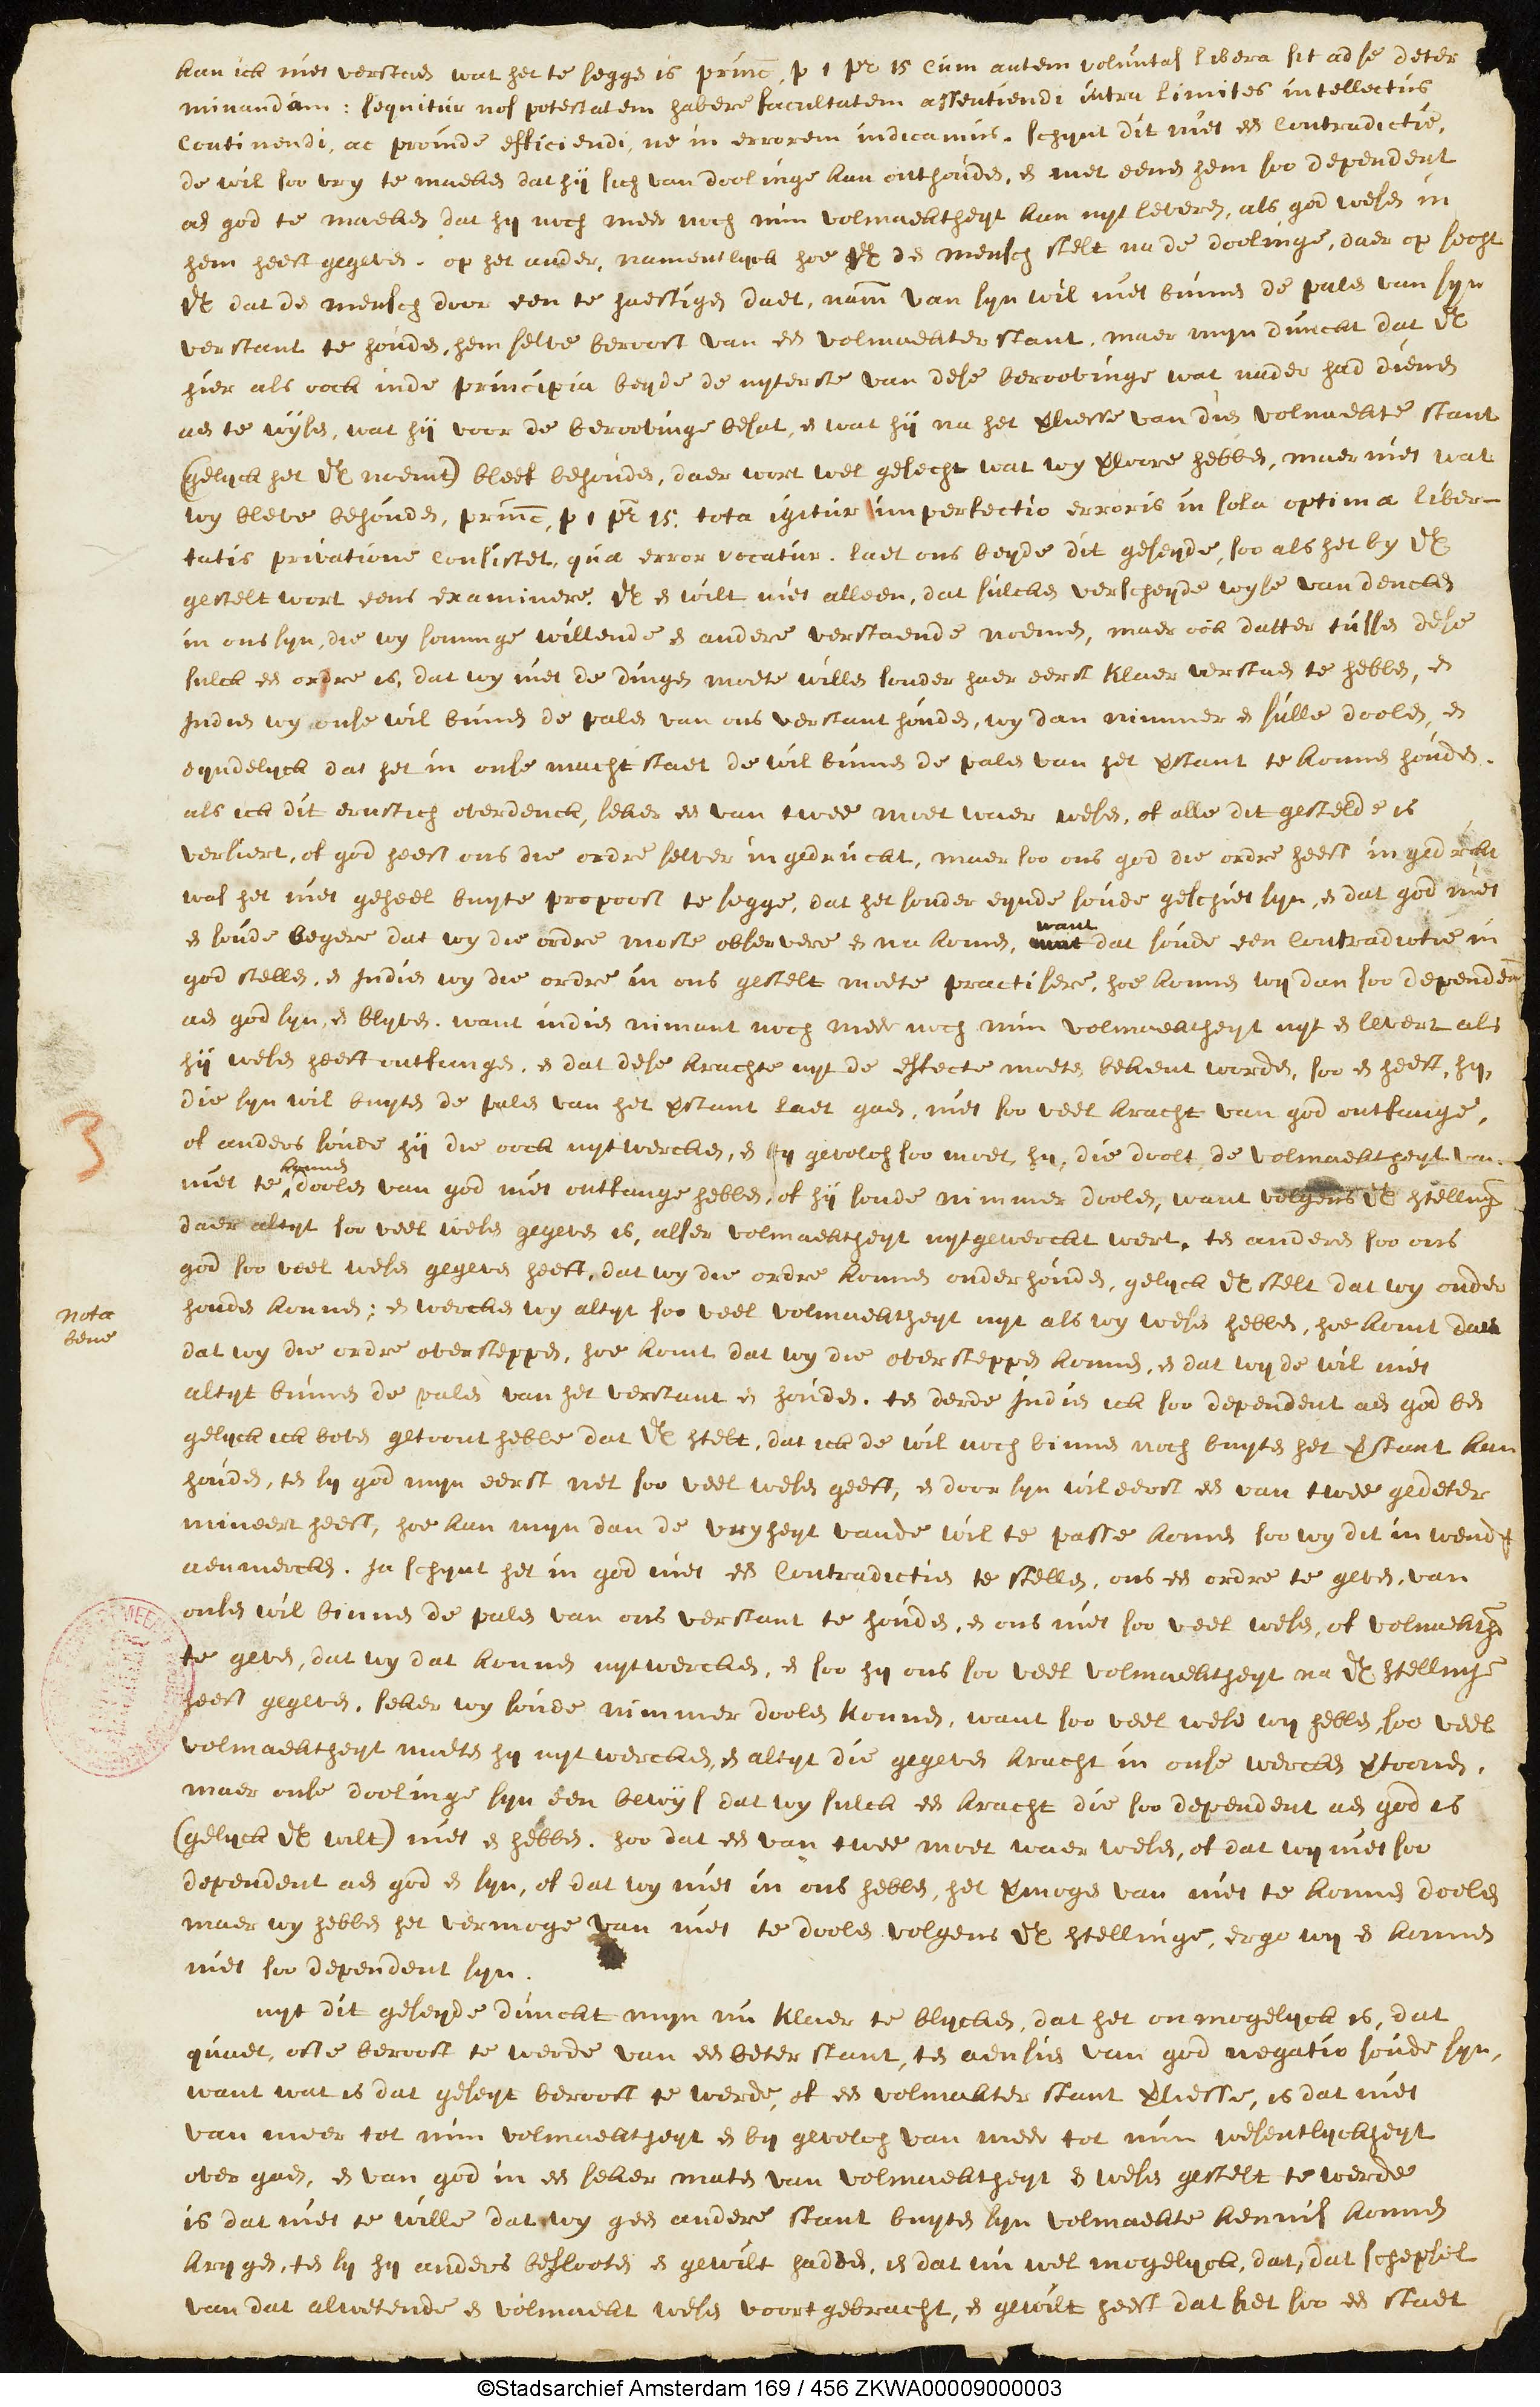 kan ick niet verstaen wat het te segge is princ. p 1 pr 15 Cum autem voluntas libera sit ad se deter
minandam: sequitur nos potestatem habere facultatem assentiendi intra limites intellectus
Continendi, ac proinde efficiendi, ne in errorem indicamus. schynt dit niet een Contradictie,
de wil soo vry te maeken dat hij sich van doolinge kan onthouden, en met eenen hem soo dependent
aen god te maeken dat hy noch meer noch min volmaektheyt kan uyt leveren, als god wesen in
hem heeft gegeven. op het ander, namentlyck hoe VE de mensch stelt na de doolinge, daer op secht
VE dat de mensch door een te haestigen daet, nam van syn wil niet binnen de palen van syn
verstant te houden, hem selve berooft van een volmaekter stant. maer myn dunckt dat VE
hier als oock inde principia beyde de uyterste van dese beroovinge wat nader had dienen
aen te wysen, wat hij voor de beroovinge besat, en wat hij na het verliesse van dien volmaekte stant
(gelyck het VE noemt) bleef behouden, daer wort wel gesecht wat wy verloore hebben, maer niet wat
wy bleve behouden, princ. p 1 pr 15. tota igitur imperfectio erroris in sola optima liber-
tatis privatione Consistet, quae error vocatur. laet ons beyde dit geseyde, soo als het by VE
gestelt wort eens examinere. VE en wilt niet alleen, dat sulcken verscheyde wyse van dencken
in ons syn, die wy sommige willende en andere verstaende noemen, maer ock datter tussen dese
sulck een ordre is, dat wy niet de dingen moete willen sonder haer eerst klaer verstaen te hebben, en
Indien wy onse wil binnen de palen van ons verstant houden, wy dan nimmer en sulle doolen, en
eyndelyck dat het in onse macht staet de wil binnen de palen van het verstant te konnen houden.
als ick dit ernstich overdenck, seker een van twee moet waer wesen, of alle dit gestelde is
versiert, of god heeft ons die ordre selver ingedruckt, maer soo ons god die ordre heeft ingedruckt
was het niet geheel buyte propoost te segge, dat het sonder eynde soude geschiet syn, en dat god niet
en soude begere dat wy die ordre moste observere en na komen, want dat soude een Contradictie in
god stellen, en Indien wy die ordre in ons gestelt moete practisere, hoe konnen wy dan soo dependent
aen god syn, en blyven. want indien nimant noch meer noch min volmaektheyt uyt en levert als
hij wesen heeft ontfangen, en dat dese krachte uyt de effecte moeten bekent worden, soo en heeft, hy,
die syn wil buyten de palen van het verstant laet gaen, niet soo veel kracht van god ontfange,
of anders soude hij die oock uytwercken, en by gevolch soo moet, hy, die doolt, de volmaektheyt van
niet te konnen doolen van god niet ontfange hebben, of hij soude nimmer doolen, want volgens VE stelling
daer altyt soo veel wesen gegeven is, alser volmaektheyt uytgewerckt wert. ten anderen soo ons
god soo veel wesen gegeven heeft, dat wy die ordre konnen onderhouden, gelyck VE stelt dat wy onder
houden konnen; en wercken wy altyt soo veel volmaektheyt uyt als wy wesen hebben, hoe komt dan
dat wy die ordre oversteppen, hoe komt dat wy die oversteppen konnen, en dat wy de wil niet
altyt binnen de palen van het verstant en houden. ten derde Indien ick soo dependent aen god ben
gelyck ick boven getoont hebbe dat VE stelt, dat ick de wil noch binnen noch buyten het verstant kan
houden, ten sy god myn eerst net soo veel wesen geeft, en door syn wil eerst een van twee gedeter
mineert heeft, hoe kan myn dan de vryheyt vande wil te passe komen soo wy dit inwendig
aenmercken. Ja schynt het in god niet een Contradictien te stellen, ons een ordre te geven, van
onsen wil binnen de palen van ons verstant te houden, en ons niet soo veel wesen, of volmaekth
te geven, dat wy dat konnen uytwercken, en soo hy ons soo veel volmaektheyt na VE stelling
heeft gegeven, seker wy soude nimmer doolen konnen, want soo veel wesen wy hebben, soo veel
volmaektheyt moeten hy uytwercken, en altyt die gegeven kracht in onse wercken vertoonen.
maer onse doolinge syn een bewys dat wy sulck een kracht die soo dependent aen god is
(gelyck VE wilt) niet en hebben. soo dat een van twee moet waer wesen, of dat wy niet soo
dependent aen god en syn, of dat wy niet in ons hebben, het vermogen van niet te konnen doolen
maer wy hebben het vermoge van niet te doolen volgens VE stellinge, ergo wy en konnen
niet soo dependent syn.
uyt dit geseyde dunckt myn nu klaer te blycken, dat het onmogelyck is, dat
quaet, ofte berooft te werde van een beter stant, ten aensien van god negatio soude syn,
want wat is dat geseyt berooft te werde, of een volmakter stant verliesse, is dat niet
van meer tot min volmaektheyt en by gevolch van meer tot min wesentlyckheyt
over gaen, en van god in een seker maten van volmaektheyt en wesen gestelt te werde
is dat niet te wille dat wy geen andere stant buyten syn volmaekte kennis konnen
krygen, ten sy hy anders beslooten en gewilt hadden, is dat nu wel mogelyck, dat, dat schepsel
van dat alwetende en volmaekt wesen voortgebracht, en gewilt heeft dat het soo een staet
Nota
bene
3
©Stadsarchief Amsterdam 169 / 456 ZKWA00009000003